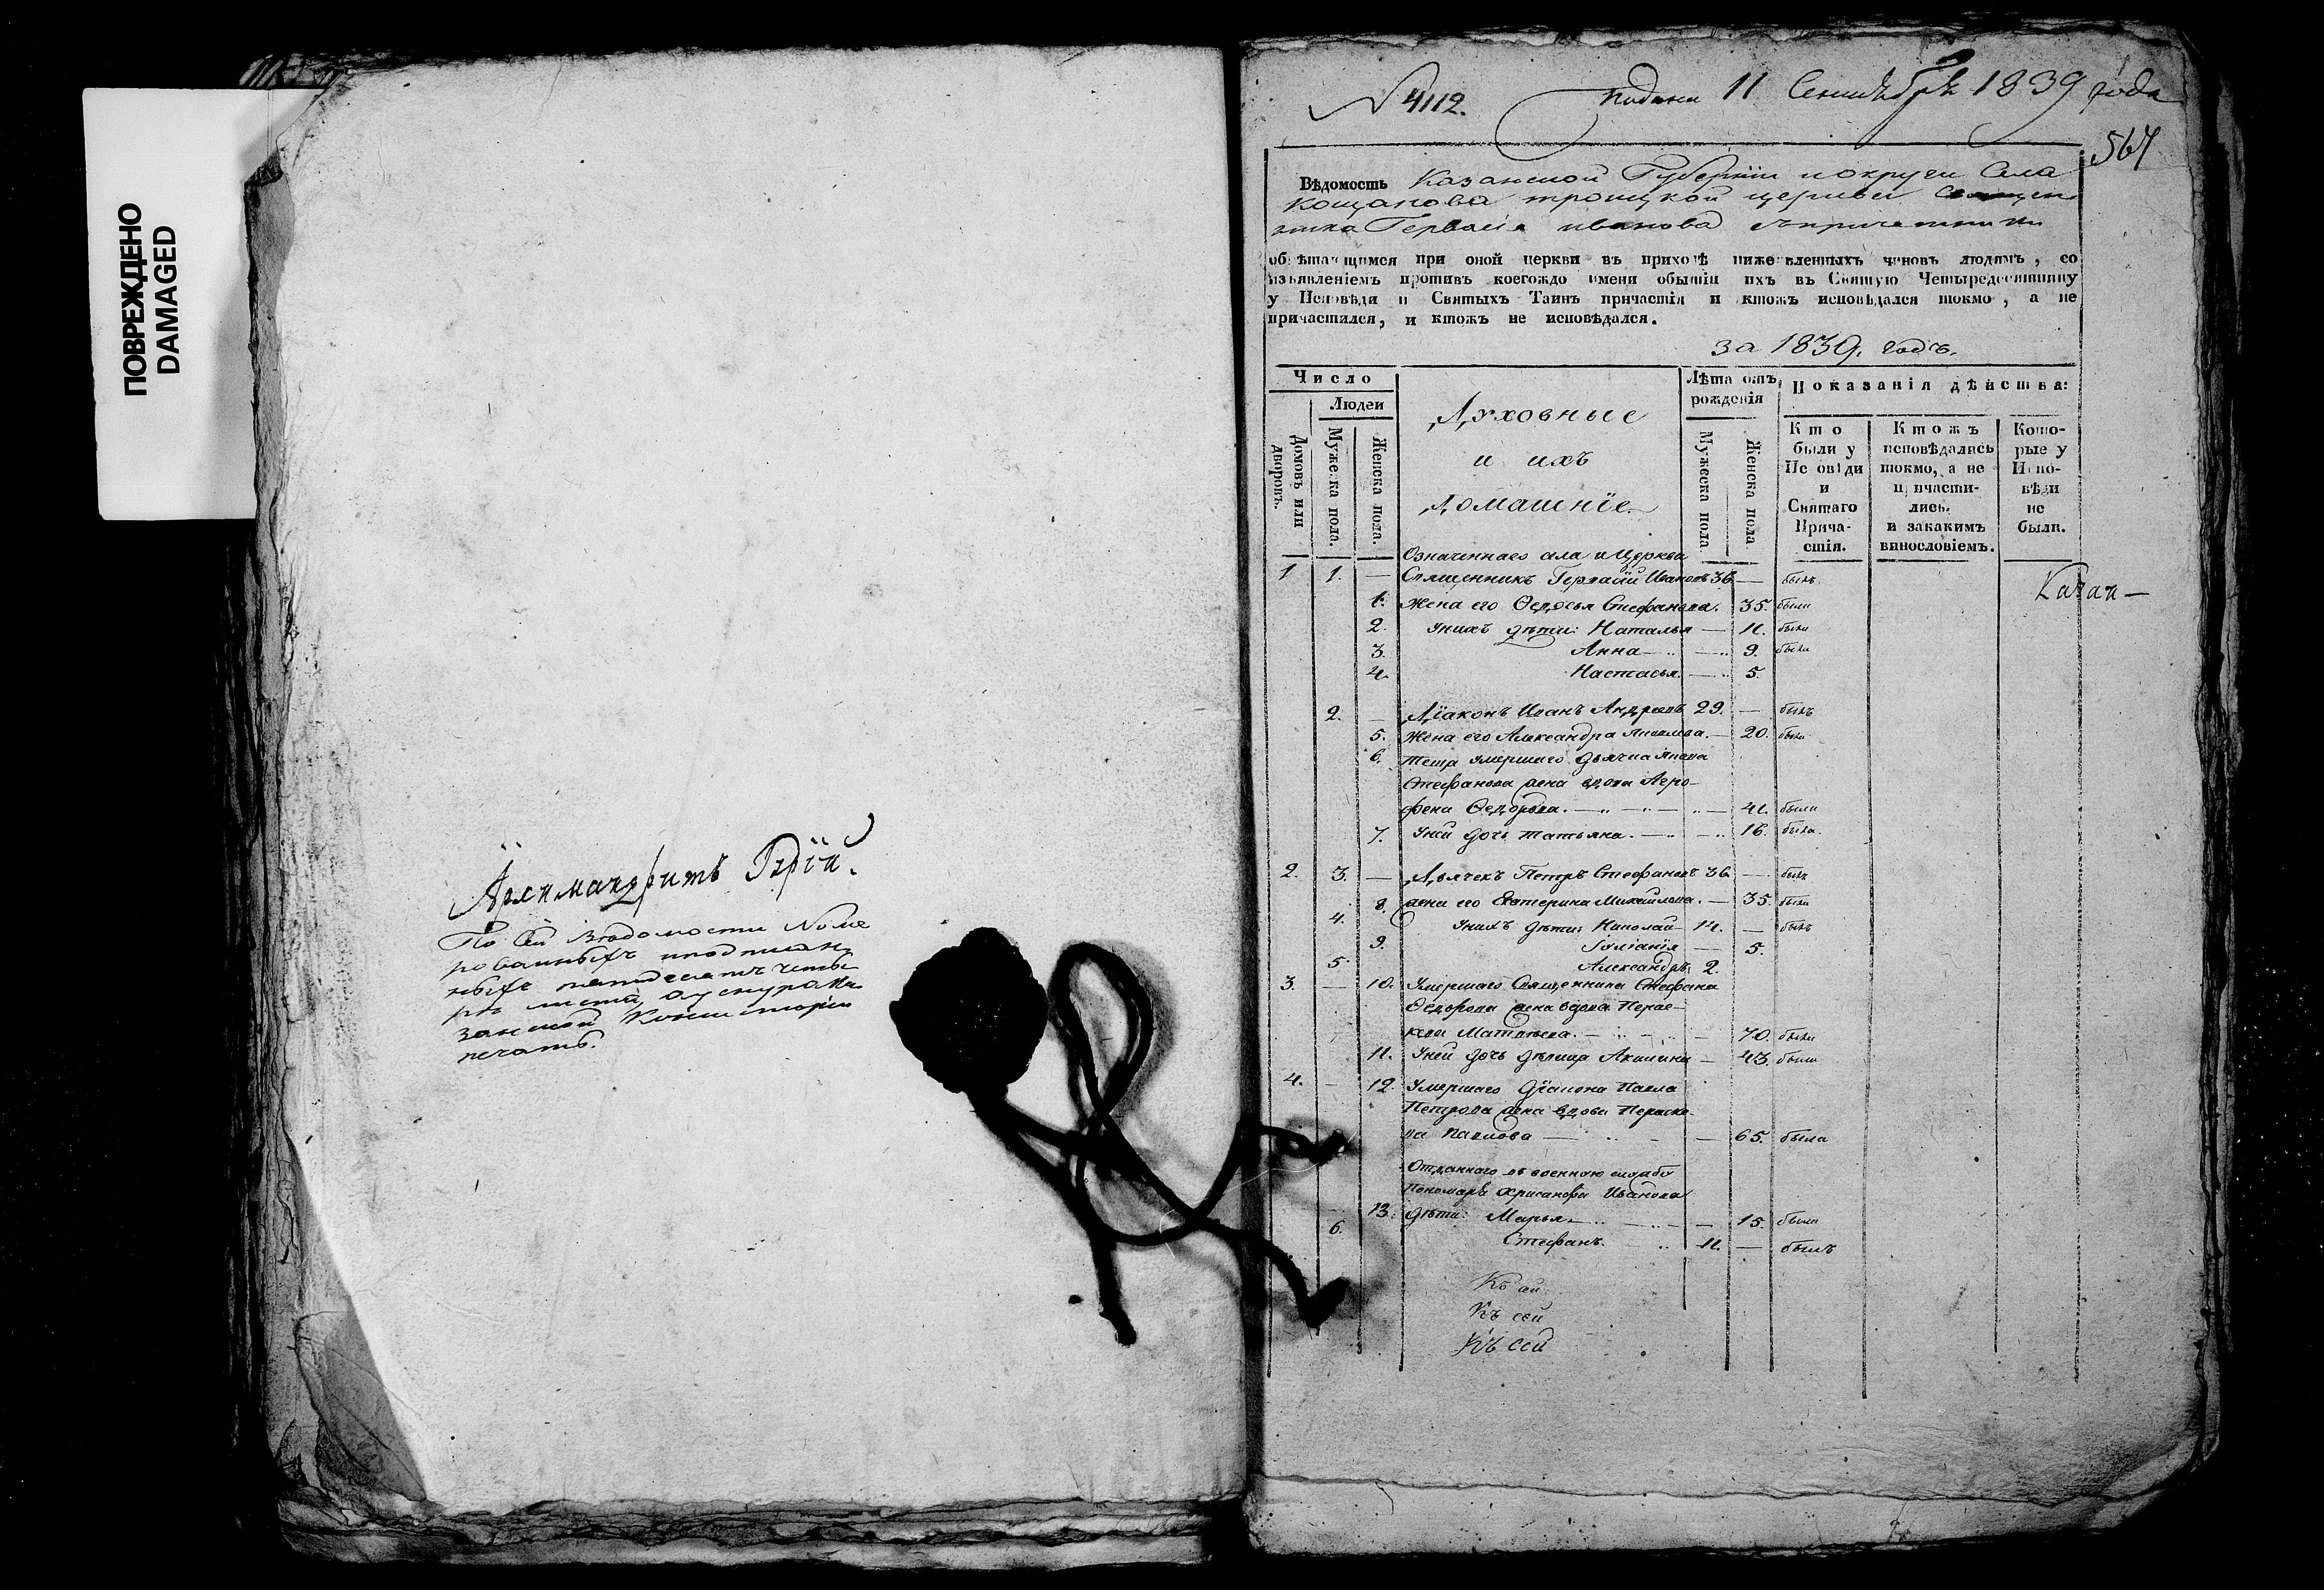 ПОВРЕЖДЕНО
DAMAGED
Архимандритъ Гурій.
По сей Ведомости Номе
рованныхъ и подписан
ныхъ пятдесятъ четы
ре листа,
занской Консисторіи
печать.
N 4112.
подана 11 Сентября 1839 года
564
Вѣдомость Казанской Губерніи и округи Села
Кощакова троицкой церкви Священ
ника Гервасія иванова съ причетники
обрѣтающимся при оной церкви въ приходѣ нижеявленныхъ чиновъ людямъ, со
изъявленіемъ противъ коегождо имени о бытіи ихъ въ Святую Четыредесятницу
у Исповѣди и Святыхъ Таинъ причастія и ктожъ исповѣдался токмо, а не
причастился, и ктожъ не исповѣдался.
за 1839. годъ.
Число
Людей
Домовъ или дворовъ.
Мужеска пола.
Женска пола.
Духовные
и ихъ
Домашніе.
Лѣта отъ рожденія
Мужеска пола
Женска пола
Показанія дѣйства:
Кто были у Исповѣди и Святаго Причастія.
Ктожъ исповѣдались токмо, а не причастились. и закакимъ винословіемъ.
Которые у Исповѣди не были.
Означеннаго села и Церкви
1 1. — Священникъ Гервасій Ивановъ 36 — былъ
1. Жена его Ѳедосья Стефанова. 35. была
2. У нихъ дѣти: Наталья — 11. была
3. Анна — 9. была
4. Настасья. — 5.
2. — Діаконъ Иванъ Андреевъ 29. — былъ
5. Жена его Александра Яковлева. — 20. была
6. Теща умершаго дьячка Якова
Стефанова жена вдова Агро-
фена Ѳедорова. — 41. была
7. У ней дочь Татьяна. — 16. была.
2. 3. — Дьячекъ Петръ Стефановъ 36 — былъ
8. жена его Екатерина Михайлова. — 35. была
4. У нихъ дѣти: Николай 14. — былъ
9. Іуліанія — 5.
5 Александръ. 2.
3. — 10. Умершаго Священника Стефана
Ѳедорова жена вдова Парас-
кева Матвѣева. — 70. была
11. У ней дочь дѣвица Акилина — 43. была
4. — 12. Умершаго Діакона Павла
Петрова жена вдова Параске-
ва Павлова — 65. была
Отданнаго въ военную службу
Пономаря Хрисанфа Иванова
13. дѣти: Марья — 15. была
6. Стефанъ. 11. — былъ
Казан —
Къ сей
Къ сей
Къ сей